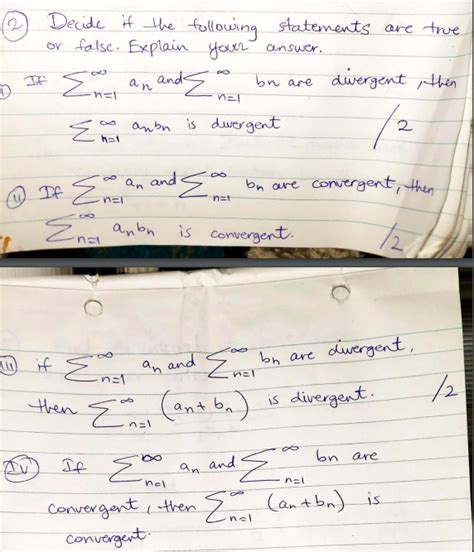 ② Decide if the following statements are true
or false. Explain your answer.
If ∑_{n=1}^{∞} aₙ and ∑_{n=1}^{∞} bₙ are divergent, then
∑_{n=1}^{∞} aₙbₙ is divergent /2
(ii) If ∑_{n=1}^{∞} aₙ and ∑_{n=1}^{∞} bₙ are convergent, then
∑_{n=1}^{∞} aₙbₙ is convergent. /2
(iii) if ∑_{n=1}^{∞} aₙ and ∑_{n=1}^{∞} bₙ are divergent,
then ∑_{n=1}^{∞} (aₙ + bₙ) is divergent. /2
(iv) If ∑_{n=1}^{∞} aₙ and ∑_{n=1}^{∞} bₙ are
convergent, then ∑_{n=1}^{∞} (aₙ + bₙ) is
convergent.